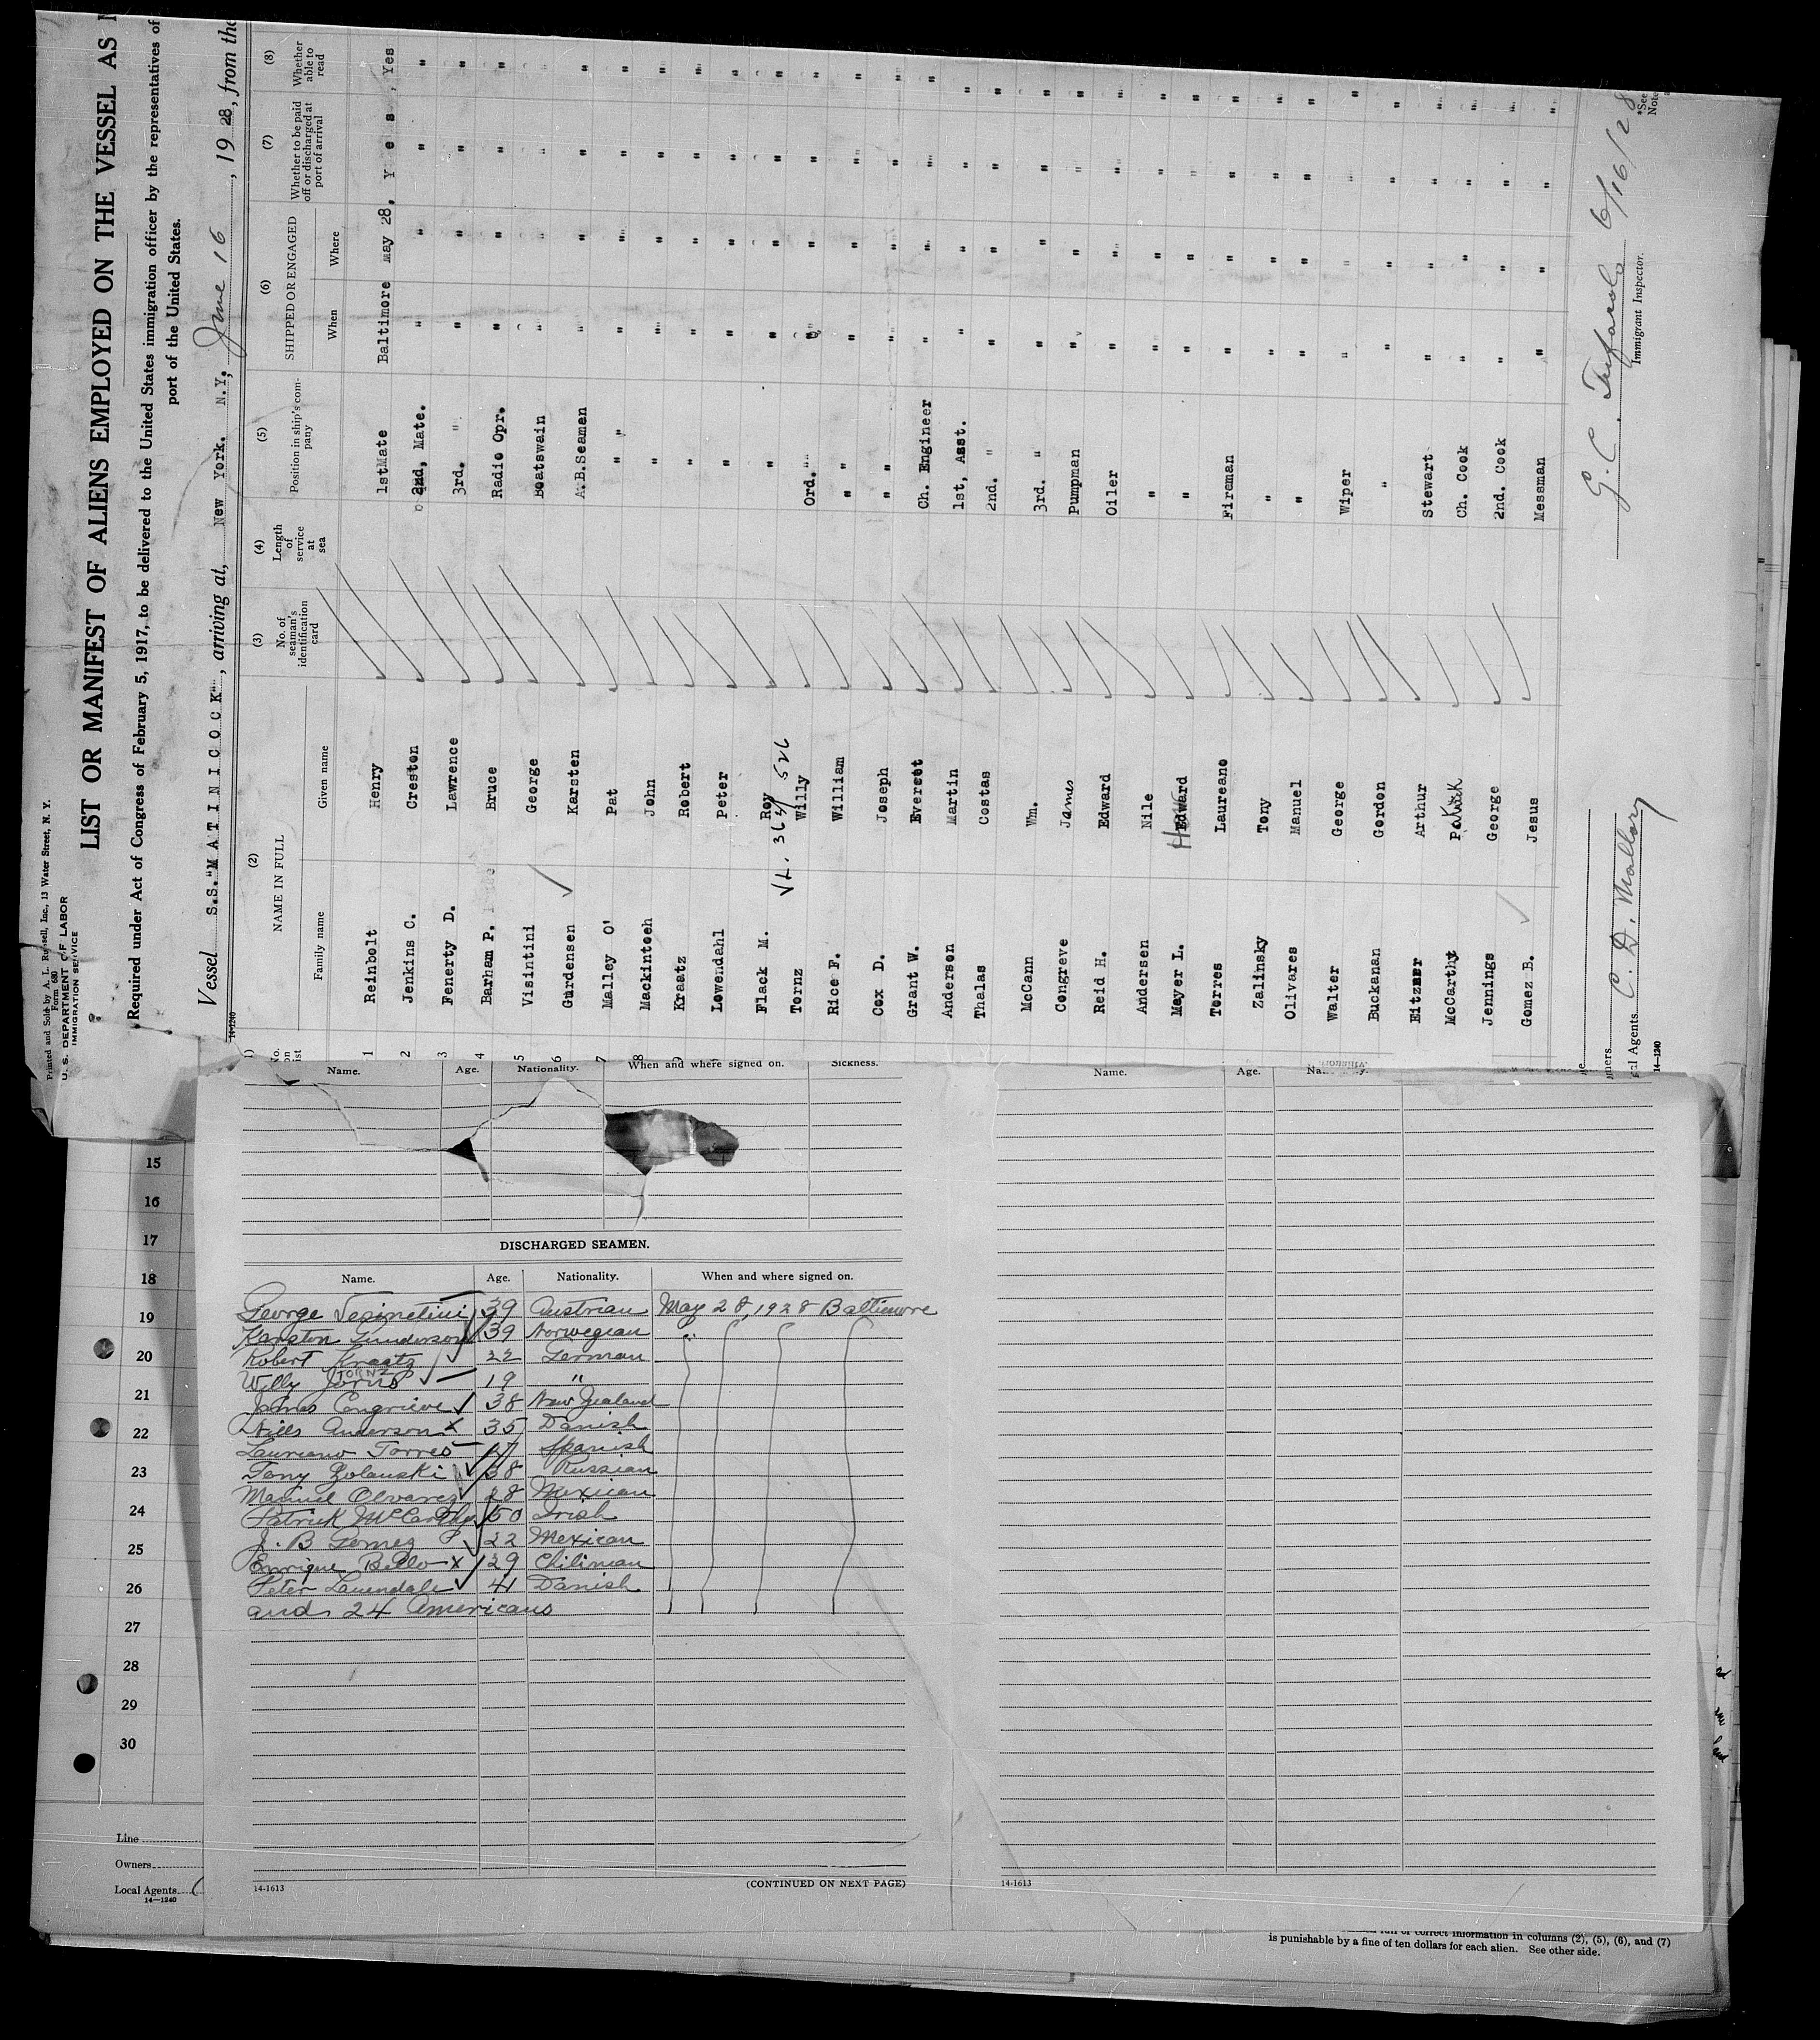 Printed and Sold by A. L. Russell, Inc., 13 Water Street, N. Y.
Form 680
U. S. DEPARTMENT OF LABOR
IMMIGRATION SERVICE
LIST OR MANIFEST OF ALIENS EMPLOYED ON THE VESSEL AS
Required under Act of Congress of February 5, 1917, to be delivered to the United States immigration officer by the representatives of
port of the United States.
Vessel S.S."MATINICOCK", arriving at, New York. N.Y., June 16, 1928, from the
(2) (3) (4) (5) (6) (7) (8)
No. on list NAME IN FULL No. of seaman's identification card Length of service at sea Position in ship's company SHIPPED OR ENGAGED Whether to be paid off or discharged at port of arrival Whether able to read
Family name Given name When Where
1 Reinbolt Henry 1stMate Baltimore may 28, Y e s , Yes
2 Jenkins C. Creston 2nd, Mate. " " " "
3 Fenerty D. Lawrence 3rd. " " " " "
4 Barham P. Bruce Radio Opr. " " " "
5 Visintini George Boatswain " " "
6 Gurdensen Karsten A.B.Seamen " " " "
7 Malley O' Pat " " " " "
8 Mackintosh John " " " " "
9 Kraatz Robert " " " " "
Lowendahl Peter " " " " "
Flack M. Roy " " " " "
VL. 363/ 526
Tornz Willy Ord. " " " " "
Rice F. William " " " " "
Cox D. Joseph " " " " "
Grant W. Everett Ch. Engineer " " " "
Anderson Martin 1st, Asst. " " " "
Thalas Costas 2nd. " " " " "
McCann Wm. 3rd. " " " " "
Congreve James Pumpman " " " "
Reid H. Edward Oiler " " " "
Andersen Nile " " " " "
Meyer L. Edward " " " " "
Torres Laureano Fireman " " " "
Zalinsky Tony " " " " "
Olivares Manuel " " " " "
Walter George Wiper " " " "
Buckanan Gordon " " " " "
Arthur Stewart " " " "
McCarthy Patrick Ch. Cook " " " "
Jennings George 2nd. Cook " " " "
Gomez B. Jesus Messman " " " "
G. C. 6/16/28
Immigrant Inspector.
*See
Note
C. D. Mallory
Agents
14-1240
Name. Age. Nationality. When and where signed on. Sickness.
Name. Age.
DISCHARGED SEAMEN.
Name. Age. Nationality. When and where signed on.
George Vesinetini 39 Austrian May 28, 1928 Baltimore
Karsten Gunderson 39 Norwegian
Robert Kraatz 22 German
TORNZ
Willy 19 "
James Congrieve 38 New Zealand
Nills Anderson x 35 Danish
Lauriano Torres 27 Spanish
Tony Zolanski 38 Russian
Manuel Olvarez 28 Mexican
Patrick McCarthy 50 Irish
J. B Gomez 22 Mexican
Enrique Bello x 29 Chilinian
Peter Lauendale 41 Danish
and 24 Americans
15
16
17
18
19
20
21
22
23
24
25
26
27
28
29
30
Line
Owners
Local Agents
14-1240
14-1613 (CONTINUED ON NEXT PAGE)
14-1613
correct information in columns (2), (5), (6), and (7)
is punishable by a fine of ten dollars for each alien. See other side.